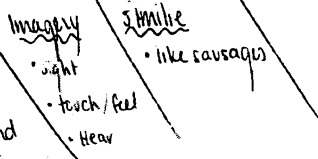 Imagery
• sight
• touch/feel
• Hear
Similie
• like sausages